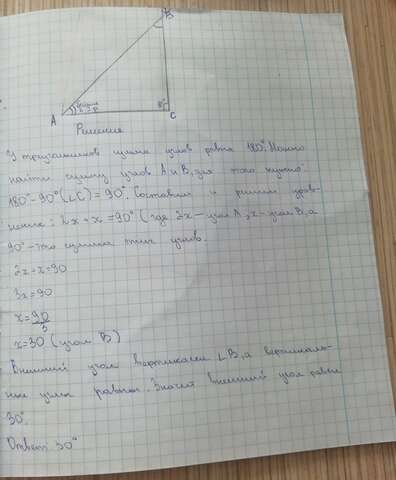 B
A
C
Решение
У треугольников сумма углов равна 180°. Можно
найти сумму углов A и B, для того нужно:
180°-90°(∠C)=90°. Составим и решим урав-
нение: 2x+x=90° (где 2x-угол A, x-угол B, а
90°-это сумма этих углов.
2x+x=90
3x=90
x=90/3
x=30 (угол B)
Внешний угол вертикален ∠B, а вертикаль-
ные углы равны. Значит внешний угол равен
30°.
Ответ 30°